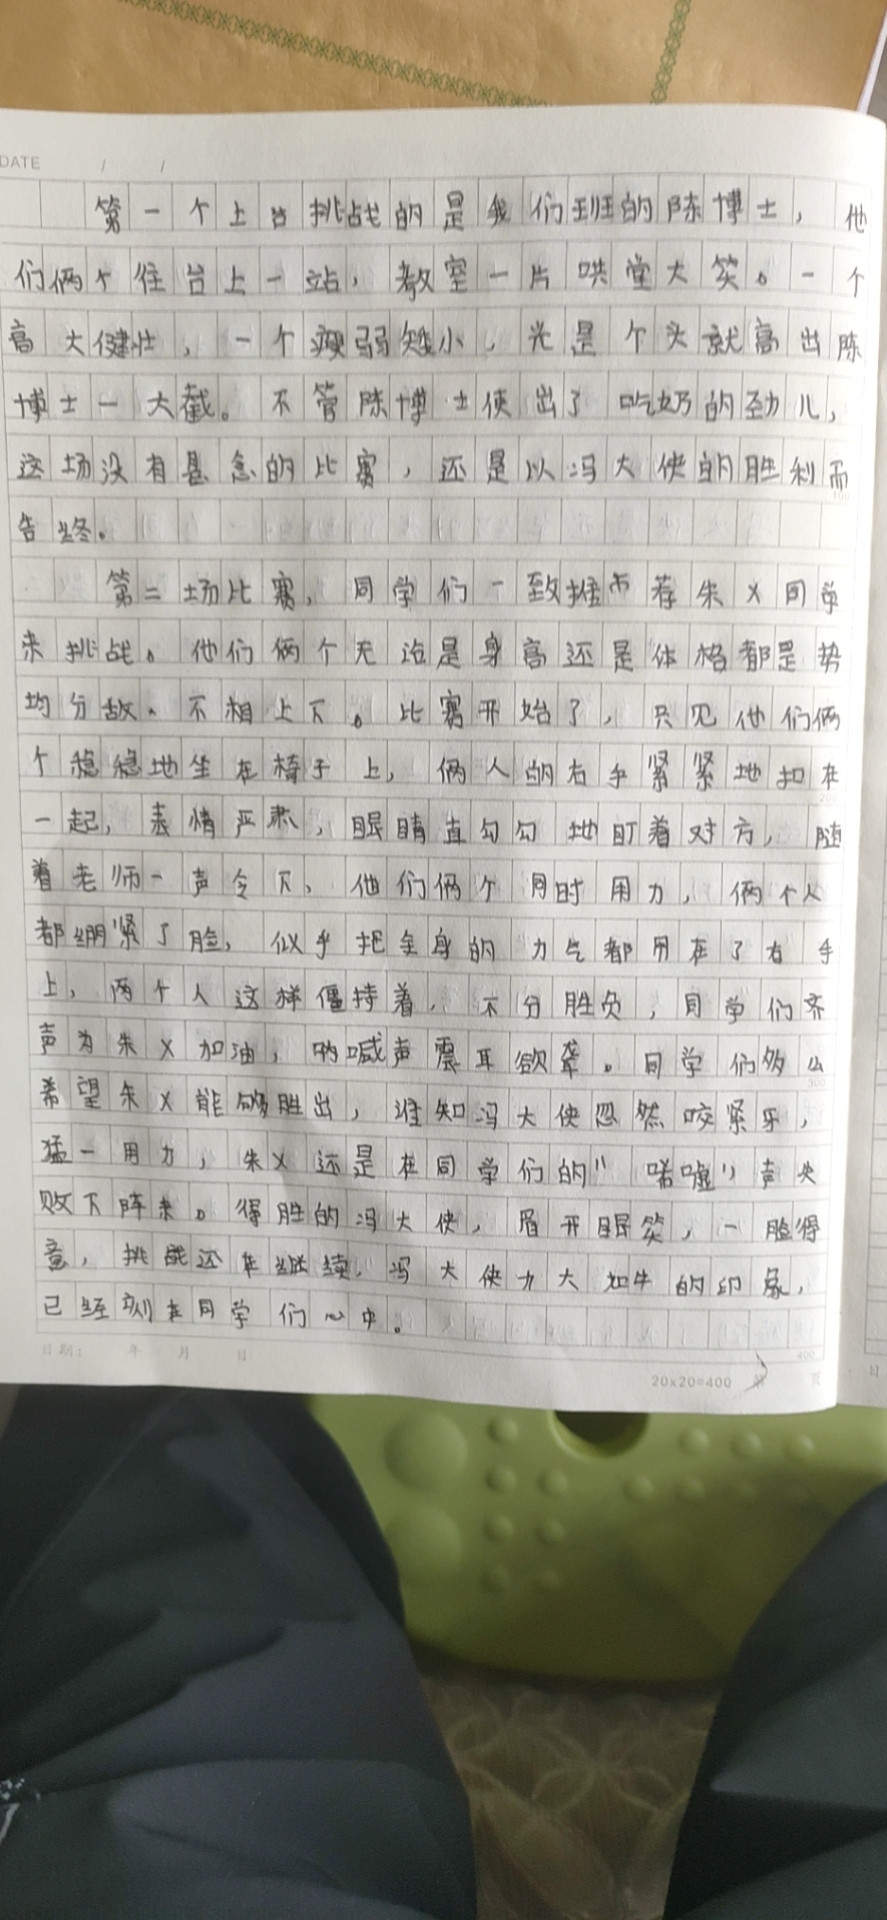 DATE / /
第一个上台挑战的是我们班的陈博士，他
们俩个往台上一站，教室一片哄堂大笑。一个
高大健壮，一个瘦弱矮小，光是个头就高出陈
博士一大截。不管陈博士使出了吃奶的劲儿，
这场没有悬念的比赛，还是以冯大侠的胜利而
告终。
第二场比赛，同学们一致推荐朱X同学
来挑战。他们俩个无论是身高还是体格都是势
均分敌、不相上下。比赛开始了，只见他们俩
个稳稳地坐在椅子上，俩人的右手紧紧地扣在
一起，表情严肃，眼睛直勾勾地盯着对方，随
着老师一声令下，他们俩个同时用力，俩个人
都绷紧了脸，似乎把全身的力气都用在了右手
上，两个人这样僵持着，不分胜负，同学们齐
声为朱X加油，呐喊声震耳欲聋。同学们多么
希望朱X能够胜出，谁知冯大侠忽然咬紧牙，
猛一用力，朱X还是在同学们的“唏嘘”声央
败下阵来。得胜的冯大侠，眉开眼笑，一脸得
意，挑战还在继续，冯大侠力大如牛的印象，
已经刻在同学们心中。
日期： 年 月 日
20×20=400 第 页